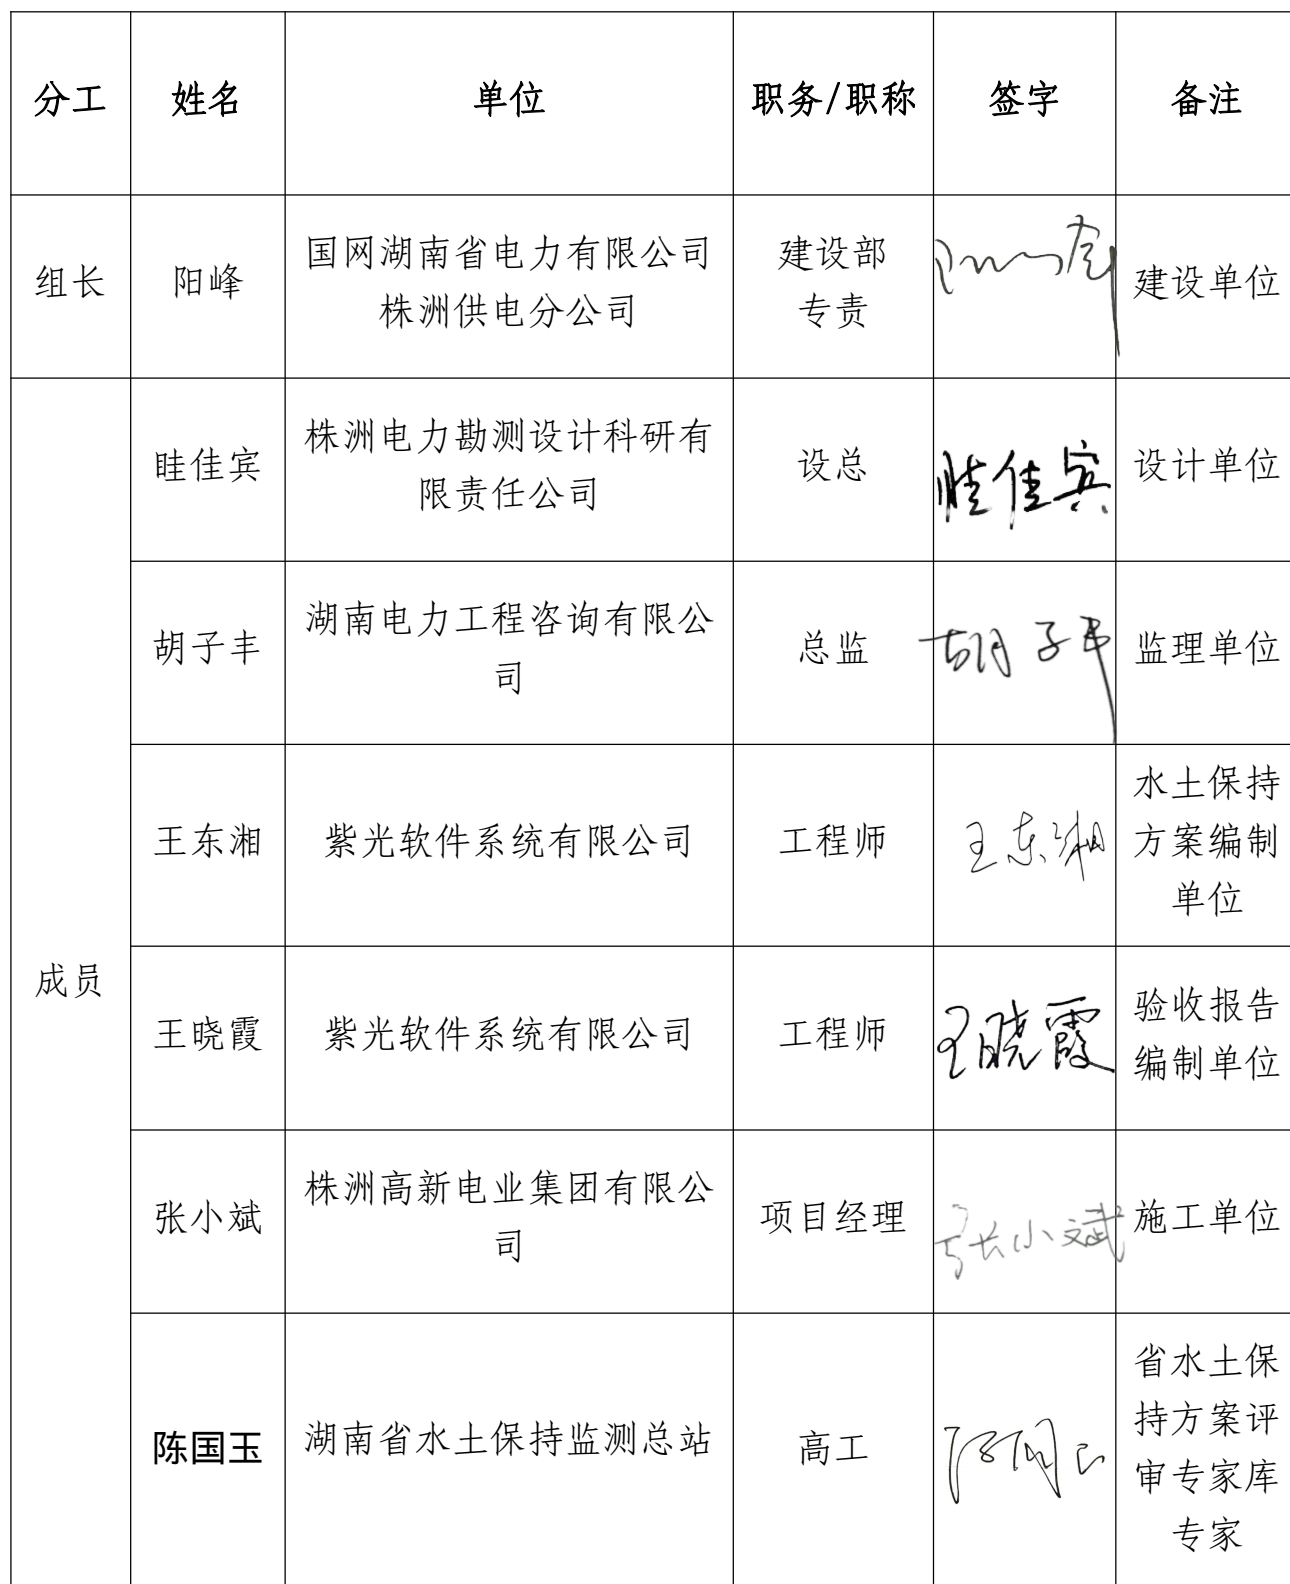 分工 姓名 单位 职务/职称 签字 备注
组长 阳峰 国网湖南省电力有限公司 建设部 建设单位
株洲供电分公司 专责
成员
眭佳宾 株洲电力勘测设计科研有 设总 眭佳宾 设计单位
限责任公司
胡子丰 湖南电力工程咨询有限公 总监 胡子丰 监理单位
司
王东湘 紫光软件系统有限公司 工程师 王东湘 水土保持
方案编制
单位
王晓霞 紫光软件系统有限公司 工程师 王晓霞 验收报告
编制单位
张小斌 株洲高新电业集团有限公 项目经理 张小斌 施工单位
司
陈国玉 湖南省水土保持监测总站 高工 省水土保
持方案评
审专家库
专家